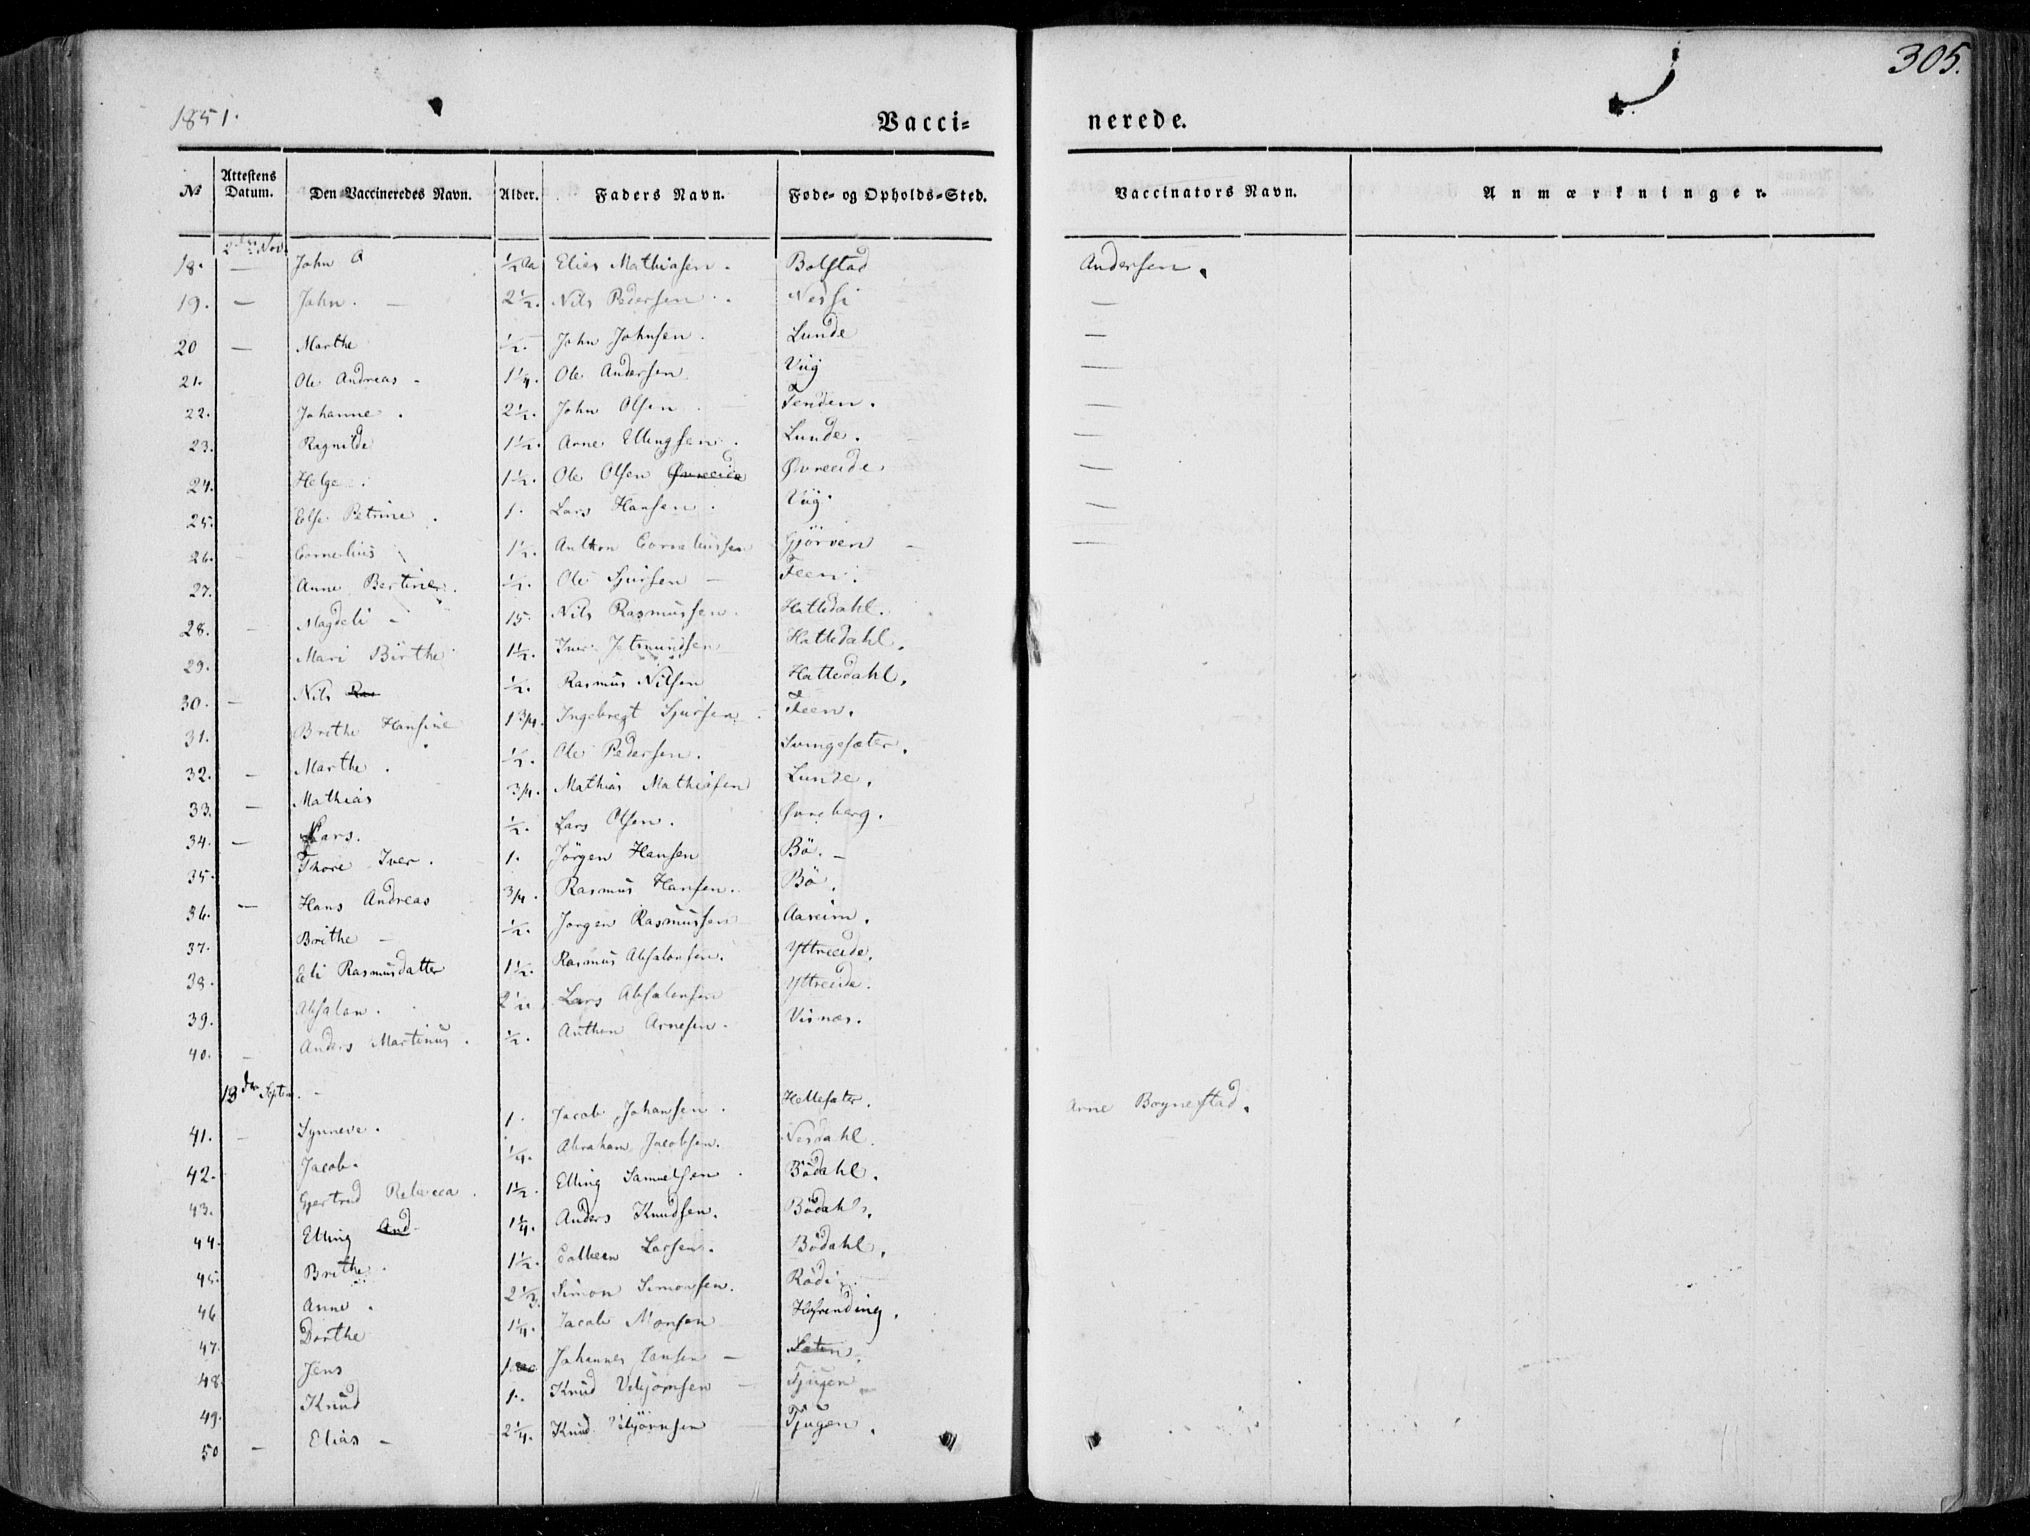 305.
1851.
Vacci= nerede.
No Attestens Datum. Den Vaccineredes Navn. Alder. Faders Navn. Føde= og Opholds=Sted. Vaccinators Navn. Anmærkninger.
2den Nov.
18. — John 1/2 Aa Elias Mathiasen. Bolstad Andersen.
19. — John. — 2 1/2. Nils Pedersen. Nessi —
20 — Marthe 1/2. John Johnsen. Lunde —
21. Ole Andreas. 1 1/4. Ole Andersen Viig —
22. Johanne. 2 1/2. John Olsen Tenden. —
23. Ragnilde 1 1/2. Arne Ellingsen. Lunde. —
24. Helge. 1 1/2. Ole Olsen Øvreeide Øvreeide —
25. Else Petrine. 1. Lars Hansen. Viig. —
26. Cornelius 1 1/2. Anthon Corneliussen Gjörven —
27. Anne Bertine. 1/2. Ole Sjursen — Feen.
28. — Magdeli — 15. Nils Rasmussen. Hattedahl.
29. Mari Birthe 1 1/2. Iver Jetmundsen Hattedahl.
30. — Nils Ras 1/2. Rasmus Nilsen Hattedahl.
31. Brithe Hansine 1 3/4. Ingebregt Sjursen Feen.
32. — Marthe. 1/2. Ole Pedersen. Svingesæter.
33. — Mathias 3/4. Mathias Mathiasen Lunde.
34. — Lars. 1/2. Lars Olsen. Øvreberg.
35. Thore Iver. 1. Jörgen Hansen Bö. —
36. — Hans Andreas 3/4. Rasmus Hansen. Bö.
37. Brithe — 1/2. Jörgen Rasmussen Aareim.
38. Eli Rasmusdatter 1 1/2. Rasmus Absalonsen. Yttreeide.
39. Absalon. 2 1/2 Lars Absalonsen Yttreeide.
40. — Anders Martinus. 1/2. Anthon Arnesen. Visnæs.
13de Septem. —
41. — Synneve. 1. Jacob Johansen. Hellesæter. Arne Bøynestad.
42. Jacob. 1/4. Abraham Jacobsen. Nesdahl.
43. Gjertrud Rebecca. 1 1/2. Elling Samuelsen. Bödahl.
44. Elling And 1 1/4. Anders Knudsen. Bödahl.
45. Brithe. 1 1/2. Larsen. Bödahl.
46 Anne. 2 1/3. Simon Simonsen. Rödi.
47. Dorthe 1 1/4. Jacob Monsen
48. Jens 1 Johannes Jansen — Sæten.
49. Knud 1. Knud Vebjörnsen — Tjugen
50 — Elias — 2 1/4. Knud Vebjörnsen Tjugen.